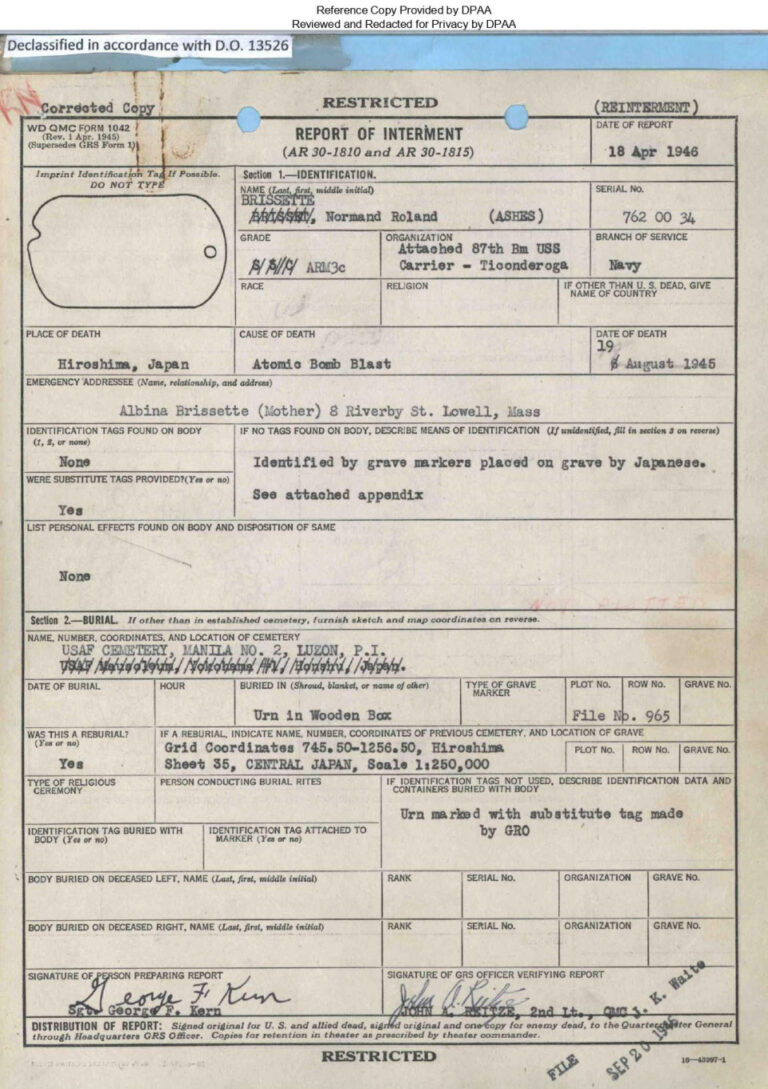 Reference Copy Provided by DPAA
Reviewed and Redacted for Privacy by DPAA
Declassified in accordance with D.O. 13526
Corrected Copy
RESTRICTED
(REINTERMENT)
WD QMC FORM 1042
(Rev. 1 Apr. 1945)
(Supersedes GRS Form 1)
REPORT OF INTERMENT
(AR 30-1810 and AR 30-1815)
DATE OF REPORT
18 Apr 1946
Imprint Identification Tag If Possible.
DO NOT TYPE
Section 1.—IDENTIFICATION.
NAME (Last, first, middle initial)
BRISSETTE
BRISSET, Normand Roland (ASHES)
SERIAL NO.
762 00 34
GRADE
ARM3c
ORGANIZATION
Attached 87th Bm USS
Carrier - Ticonderoga
BRANCH OF SERVICE
Navy
RACE
RELIGION
IF OTHER THAN U. S. DEAD, GIVE
NAME OF COUNTRY
PLACE OF DEATH
Hiroshima, Japan
CAUSE OF DEATH
Atomic Bomb Blast
DATE OF DEATH
19
6 August 1945
EMERGENCY ADDRESSEE (Name, relationship, and address)
Albina Brissette (Mother) 8 Riverby St. Lowell, Mass
IDENTIFICATION TAGS FOUND ON BODY
(1, 2, or none)
None
IF NO TAGS FOUND ON BODY, DESCRIBE MEANS OF IDENTIFICATION (If unidentified, fill in section 3 on reverse)
Identified by grave markers placed on grave by Japanese.
See attached appendix
WERE SUBSTITUTE TAGS PROVIDED? (Yes or no)
Yes
LIST PERSONAL EFFECTS FOUND ON BODY AND DISPOSITION OF SAME
None
Section 2.—BURIAL. If other than in established cemetery, furnish sketch and map coordinates on reverse.
NAME, NUMBER, COORDINATES, AND LOCATION OF CEMETERY
USAF CEMETERY, MANILA NO. 2, LUZON, P.I.
USAF Mausoleum, Yokohama #1, Honshu, Japan.
DATE OF BURIAL
HOUR
BURIED IN (Shroud, blanket, or name of other)
Urn in Wooden Box
TYPE OF GRAVE
MARKER
PLOT NO.
ROW NO.
GRAVE NO.
File No. 965
WAS THIS A REBURIAL?
(Yes or no)
Yes
IF A REBURIAL, INDICATE NAME, NUMBER, COORDINATES OF PREVIOUS CEMETERY, AND LOCATION OF GRAVE
Grid Coordinates 745.50-1256.50, Hiroshima
Sheet 35, CENTRAL JAPAN, Scale 1:250,000
PLOT NO.
ROW NO.
GRAVE NO.
TYPE OF RELIGIOUS
CEREMONY
PERSON CONDUCTING BURIAL RITES
IF IDENTIFICATION TAGS NOT USED, DESCRIBE IDENTIFICATION DATA AND
CONTAINERS BURIED WITH BODY
Urn marked with substitute tag made
by GRO
IDENTIFICATION TAG BURIED WITH
BODY (Yes or no)
IDENTIFICATION TAG ATTACHED TO
MARKER (Yes or no)
BODY BURIED ON DECEASED LEFT, NAME (Last, first, middle initial)
RANK
SERIAL NO.
ORGANIZATION
GRAVE NO.
BODY BURIED ON DECEASED RIGHT, NAME (Last, first, middle initial)
RANK
SERIAL NO.
ORGANIZATION
GRAVE NO.
SIGNATURE OF PERSON PREPARING REPORT
George F Kern
Sgt. George F. Kern
SIGNATURE OF GRS OFFICER VERIFYING REPORT
John A. Reitze
JOHN A. REITZE, 2nd Lt., QMC
J. K. Waite
DISTRIBUTION OF REPORT: Signed original for U. S. and allied dead, signed original and one copy for enemy dead, to the Quartermaster General
through Headquarters GRS Officer. Copies for retention in theater as prescribed by theater commander.
RESTRICTED
FILE
SEP 20 1946
16-43997-1